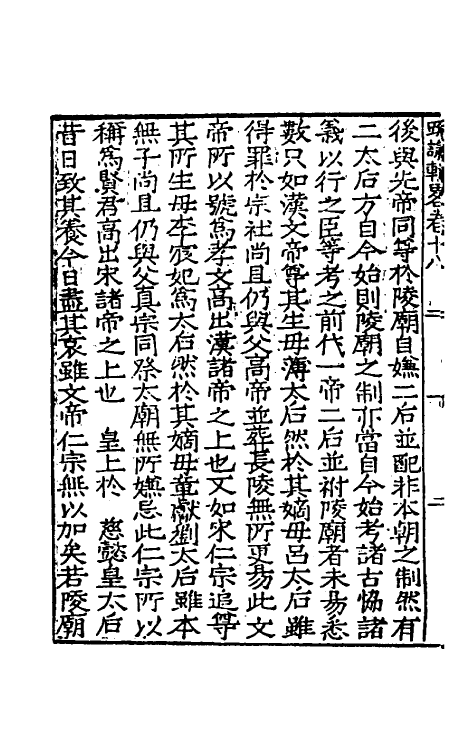 疏議輯畧卷十八 二
後與先帝同等於陵廟自嫌二后並配非本朝之制然有
二太后方自今始則陵廟之制亦當自今始考諸古恊諸
義以行之臣等考之前代一帝二后並祔陵廟者未易悉
數只如漢文帝尊其生毋薄太后然於其嫡毋呂太后雖
得罪於宗社尚且仍與父高帝並葬長陵無所更易此文
帝所以號為孝文高出漢諸帝之上也又如宋仁宗追尊
其所生毋李宸妃為太后然於其嫡毋章獻劉太后雖本
無子尚且仍與父真宗同祭太廟無所嫌忌此仁宗所以
稱為賢君高出宋諸帝之上也 皇上於 慈懿皇太后
昔日致其養今日盡其哀雖文帝仁宗無以加矣若陵廟